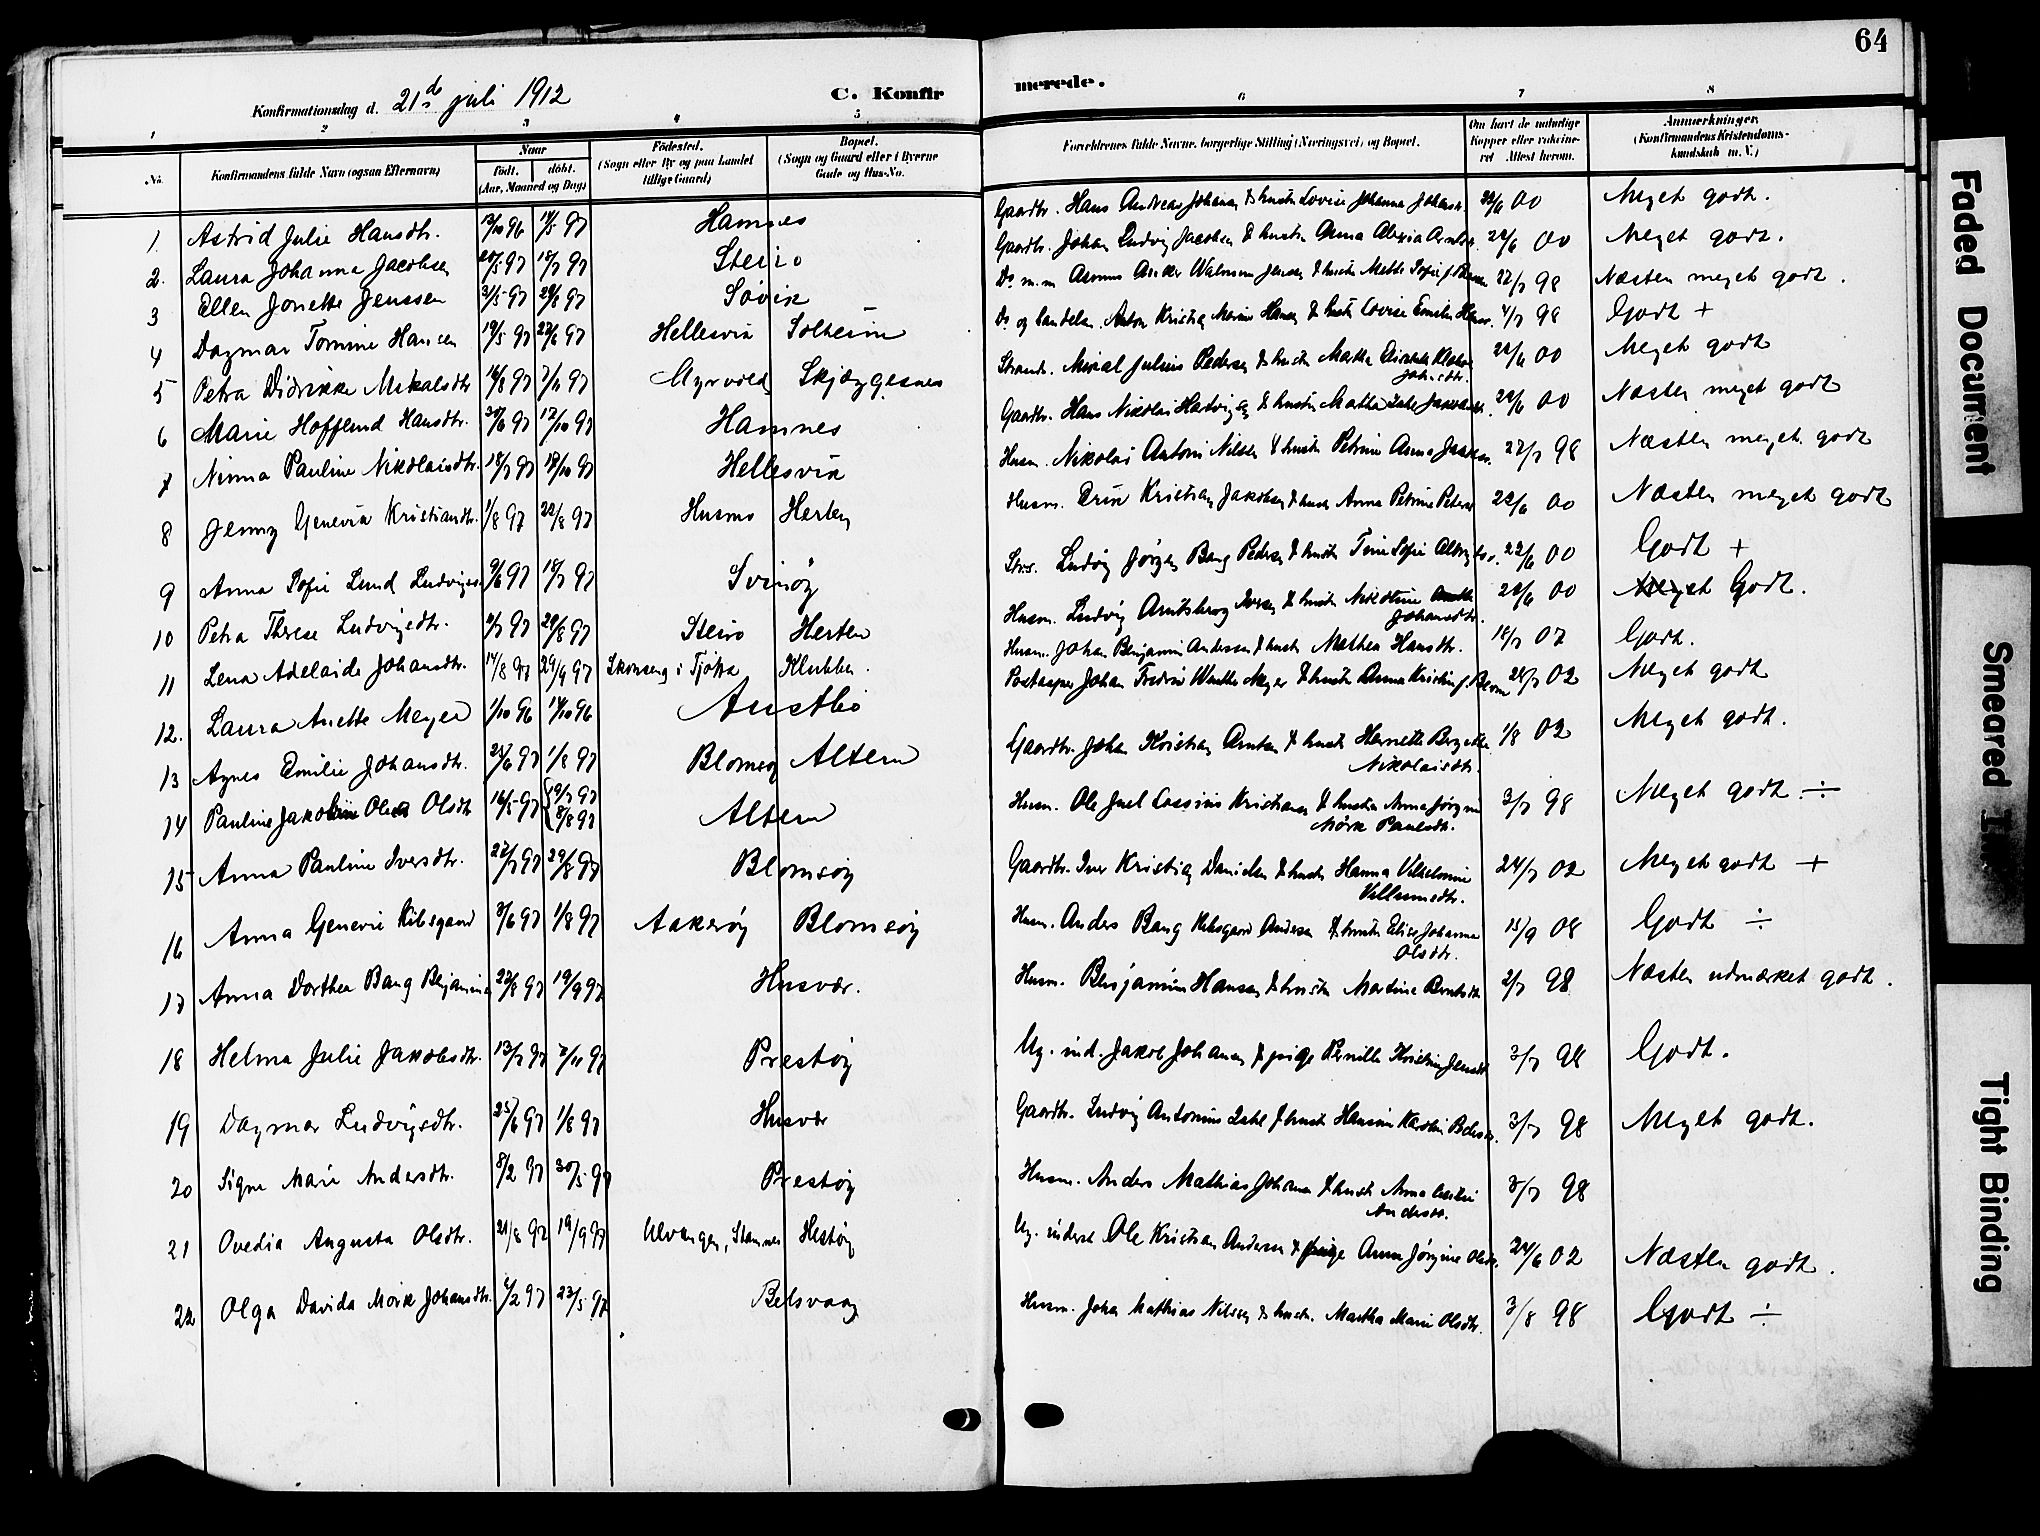 64
Konfirmationsdag d. 21de juli 1912 C. Konfirmerede.
1 2 3 4 5 6 7 8
No. Konfirmandens fulde Navn (ogsaa Efternavn) Naar født. døbt. (Aar, Maaned og Dag) Fødested. (Sogn eller By og paa Landet tillige Gaard) Bopæl. (Sogn og Gaard eller i Byerne Gade og Hus-No. Forældrenes fulde Navne, borgerlige Stilling (Næringsvei) og Bopæl. Om havt de naturlige Kopper eller vakcineret Attest herom. Anmærkninger. (Konfirmandens Kristendomskundskab m. V.)
1. Astrid Julie Hansdtr. 13/10 96 17/5 97 Hamnes Gaardbr. Hans Andreas Johansen & hustru Lovise Johanna 22/6 00 Meget godt.
2. Laura Johanna Jacobsen 18/7 97 Steiro Gaardbr. Johan Ludvig Jacobsen & hustru Anna Alexia 22/6 00 Meget godt.
3 Ellen Jonette Jenssen 31/5 97 29/8 97 Søvik Do m.m Asmus Ander Jensen & hustru Mette Sofie 22/7 98 Næsten meget godt.
4 Dagmar Tomine Hansen 19/5 97 27/6 97 Hellesvik Solheim Do og handelsm. Anton Kristian Hansen & hustru Lovise 4/7 98 Godt +
5 Petra Didrikke Mikalsdtr 16/8 97 7/11 97 Myrvold Skjeggesnes Strands. Mikal Julius Pedersen & hustru Martha Elisabeth Johansdtr. 22/6 00 Meget godt
6 Marie Hofflund Hansdtr. 30/6 97 17/10 97 Hamnes Gaardbr. Hans Nikolai Hartvigsen & hustru Martha 22/6 00 Næsten meget godt
7 Ninna Pauline Nikolaisdtr. 18/7 97 17/10 97 Hellesvik Husm. Nikolai Antoni Nilsen & hustru Petrine Anna 22/7 98 Næsten meget godt
8 Jenny Genevia Kristiansdtr. 1/8 97 22/8 97 Husmo Herten Husm. Kristian Jakobsen & hustru Anna Petrine 22/6 00 Næsten meget godt
9 Anna Sofie Lund Ludvigs. 9/6 97 18/7 97 Svinøy Ludvig Jørgen Bang Pedersen & hustru Tine Sofie 22/6 00 Godt +
10 Petra Therese Ludvigsdtr. 29/8 97 Steiro Herten Husm. Ludvig Arntsberg Iversen & hustru Nikoline Johansdtr. 22/6 00 Godt.
11 Lena Adelaide Johansdtr. 14/8 97 29/9 97 Skonseng i Tjøtta Klubben. Husm. Johan Benjamin Andersen & hustru Mathea Hansdtr. 18/7 07 Godt.
12. Laura Anette Meyer 1/10 96 Austbø Johan Fredrik Meyer & hustru Anna Kristine 02 Meget godt
13 Agnes Emilie Johansdtr. 25/6 97 1/8 97 Blomsøy Altern Gaardbr. Johan Kristian Arntsen & hustru Hernette Nikolaisdtr. 1/8 02 Meget godt.
14 Pauline Jakobine Olea Olsdtr 16/5 97 {9/7 97 8/8 97 Altern Husm. Ole Juel Cassius Kristiansen & hustru Anna Jørgine Mørk Paulsdtr. 3/7 98 Meget godt. ÷
15 Anna Pauline Iversdtr. 22/7 97 29/8 97 Blomsøy Gaardbr. Iver Kristian Danielsen & hustru Hanna Vilhelmine Villumsdtr. 24/7 02 Meget godt +
16 Anna Genevie Kibsgaard 3/6 97 1/8 97 Aakerøy Blomsøy Husm. Anders Bang Kibsgaard Andersen & hustru Elise Johanna Olsdtr. 15/9 08 Godt ÷
17 Anna Dorthea Bang Benjamins 22/8 97 19/9 97 Husvær. Husm. Benjamin Hansen & hustru Martine Berntsdtr 2/7 98 Næsten udmærket godt.
18 Helma Julie Jakobsdtr. 13/7 97 7/11 97 Prestøy Ug. ind. Jakob Johansen & pige Pernille Kristine Jensdtr 3/7 98 Godt.
19 Dagmar Ludvigsdtr. 25/6 97 1/8 97 Husvær Gaardbr. Ludvig Antonius & hustru Hansine Karoline 3/7 98 Meget godt.
20 Signe Marie Andersdtr. 8/2 97 30/5 97 Prestøy Husm. Anders Mathias Johansen & hustru Anna Andersdtr. 3/7 98
21 Ovedia Augusta Olsdtr. 21/8 97 19/9 97 Ulvangen, Stamnes Hestøy Ug. inderst Ole Kristian Andersen & pige Anna Jørgine Olsdtr. 24/6 02 Næsten godt.
22 Olga Davida Mørk Johansdtr. 6/2 97 23/5 97 Belsvaag Husm. Johan Mathias Nilssen & hustr. Martha Marie Olsdtr. 3/8 98 Godt ÷
Faded Document
Smeared Ink
Tight Binding